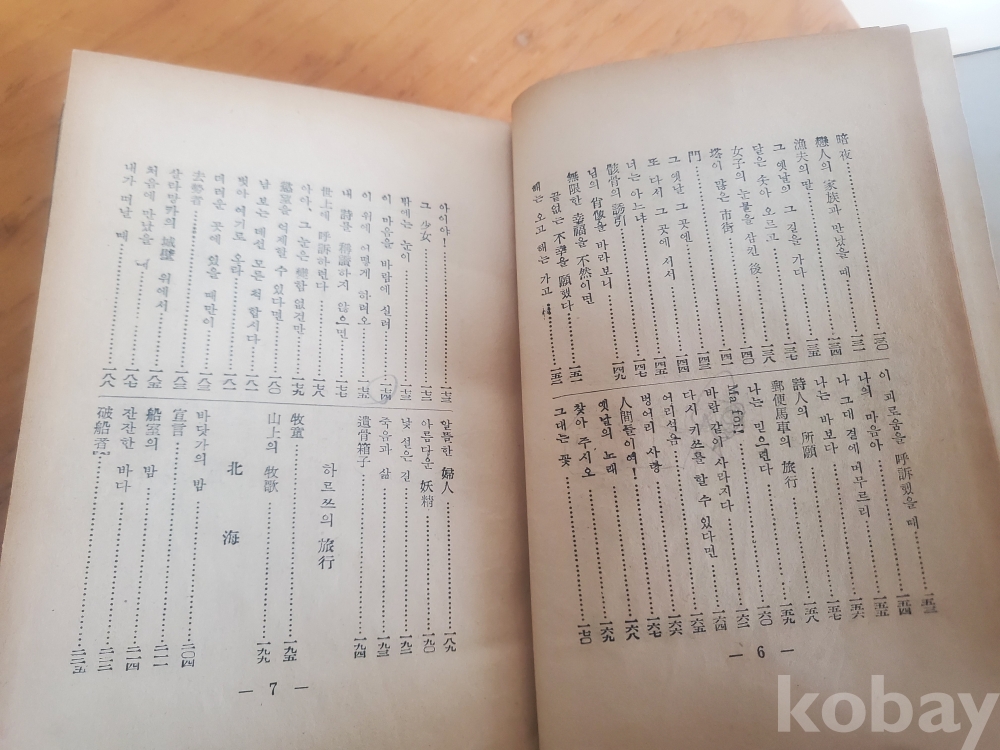 暗夜……一三〇
戀人의 家族과 만났을 때……一三一
漁夫의 딸……一三四
그 옛날의 그 길을 가다……一三五
달은 솟아 오르고……一三七
女子의 눈물을 삼킨 後……一三八
塔이 많은 市街……一四〇
門……一四一
그 옛날 그 곳엔……一四三
또 다시 그 곳에 서서……一四四
너는 아느냐……一四五
骸骨의 誘引……一四七
님의 肖像을 바라보니……一四九
無限한 幸福을 不然이면
끝없는 不幸을 願했다……一五一
해는 오고 해는 가고……一五二
이 괴로움을 呼訴했을 때……一五三
나의 마음아……一五四
나 그대 곁에 머무르리……一五五
나는 바보다……一五六
詩人의 所願……一五七
郵便馬車의 旅行……一五八
나는 믿으련다……一五九
Ma foi!……一六〇
바람 같이 사라지다……一六二
다시 키쓰를 할 수 있다면……一六四
어리석음……一六五
벙어리 사랑……一六六
人間들이여!……一六七
옛날의 노래……一六八
찾아 주시오……一六九
그대는 꽃……一七〇
— 6 —
아이야!
그 少女
밤에는 눈이……一七三
이 마음을 바람에 실려……一七四
이 위에 어떻게 하려오……一七五
내 詩를 稱讚하지 않으면……一七七
世上에 呼訴하련다……一七八
아아, 그 눈은 變함 없건만……一七九
억제할 수 있다면
남 보는 데선 모른 척 합시다
벗아 여기로 오라
더러운 곳에 있을 때만이
去勢者
살라망카의 城壁 위에서
처음에 만났을 때……一八七
내가 떠날 때……一八八
알뜰한 婦人……一八九
아름다운 妖精……一九〇
낯 선은 긴……一九二
죽음과 삶……一九三
遺骨箱子……一九四
하르쯔의 旅行
牧童……一九五
山上의 牧歌……一九九
北海
바닷가의 밤……二〇四
宣言
船室의 밤……二一一
잔잔한 바다……二一四
破船者……二一五
— 7 —
kobay